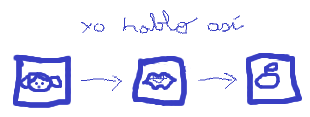 yo hablo así